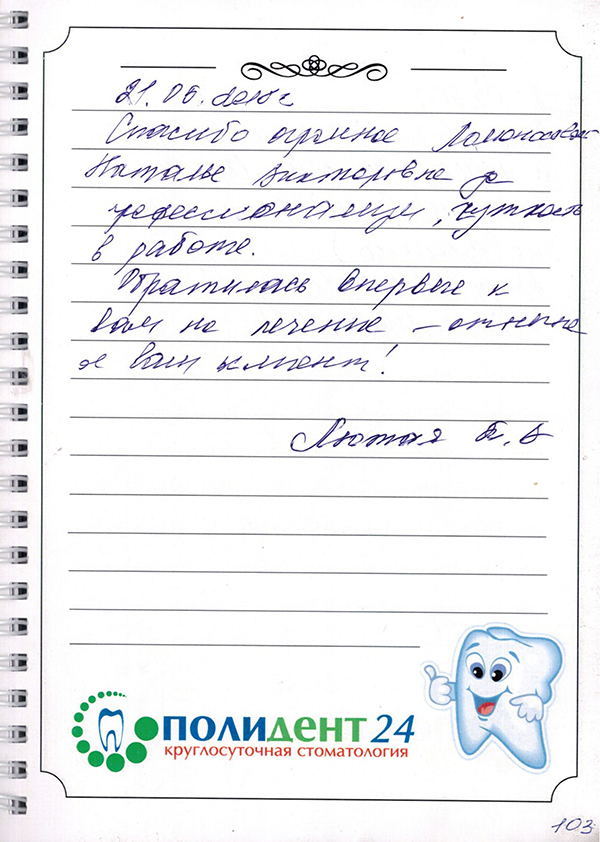 21.05.
Спасибо огромное Ломоносовой
Наталье Викторовне за
профессионализм, чуткость
в работе.
Обратилась впервые к
вам на лечение – отныне
я ваш клиент!
Лютая
ПОЛИДЕНТ 24
круглосуточная стоматология
103